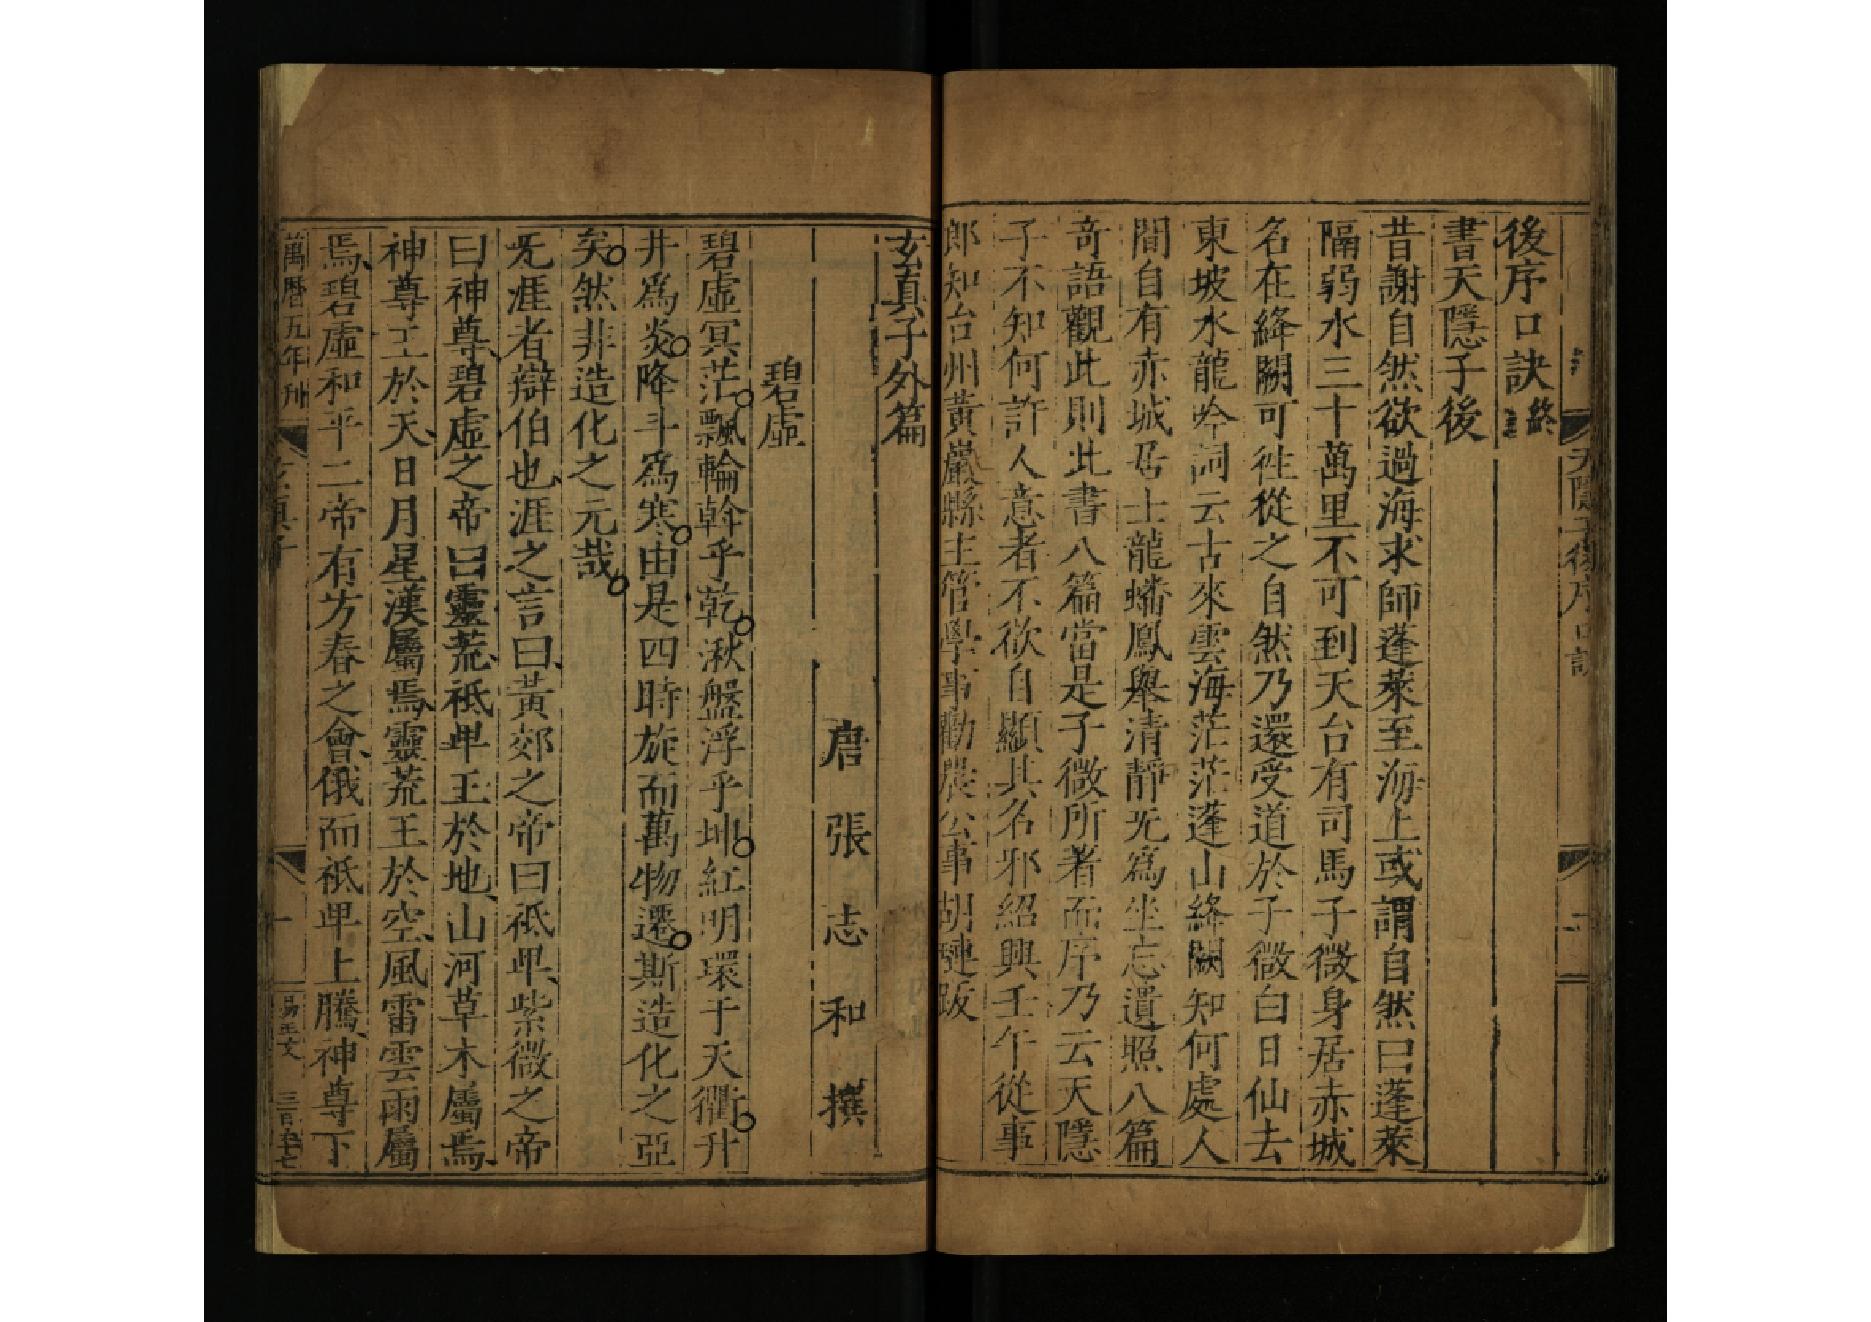 天隱子後序口訣
二
後序口訣終
書天隱子後
昔謝自然欲過海求師蓬萊至海上或謂自然曰蓬萊
隔弱水三十萬里不可到天台有司馬子微身居赤城
名在絳闕可徃從之自然乃還受道於子微白日仙去
東坡水龍吟詞云古來雲海茫茫蓬山絳闕知何處人
間自有赤城居士龍蟠鳳舉清靜旡為坐忘遺照八篇
奇語觀此則此書八篇當是子微所著而序乃云天隱
子不知何許人意者不欲自顯其名邪紹興壬午從事
郎知台州黃巖縣主管學事勸農公事胡璉跋
玄真子外篇
唐張志和撰
碧虛
碧虛冥茫飄輪斡乎乾湫盤浮乎坤紅明環于天衢升
井為炎降斗為寒由是四時旋而萬物遷斯造化之亞
矣然非造化之元哉
旡涯者辯伯也涯之言曰黃郊之帝曰祗卑紫微之帝
曰神尊碧虛之帝曰靈荒祗卑王於地山河草木屬焉
神尊王於天日月星漢屬焉靈荒王於空風雷雲雨屬
焉碧虛和平二帝有方春之會俄而祗卑上騰神尊下
萬曆五年刋
玄真子
一
昜玉文
三百五十七